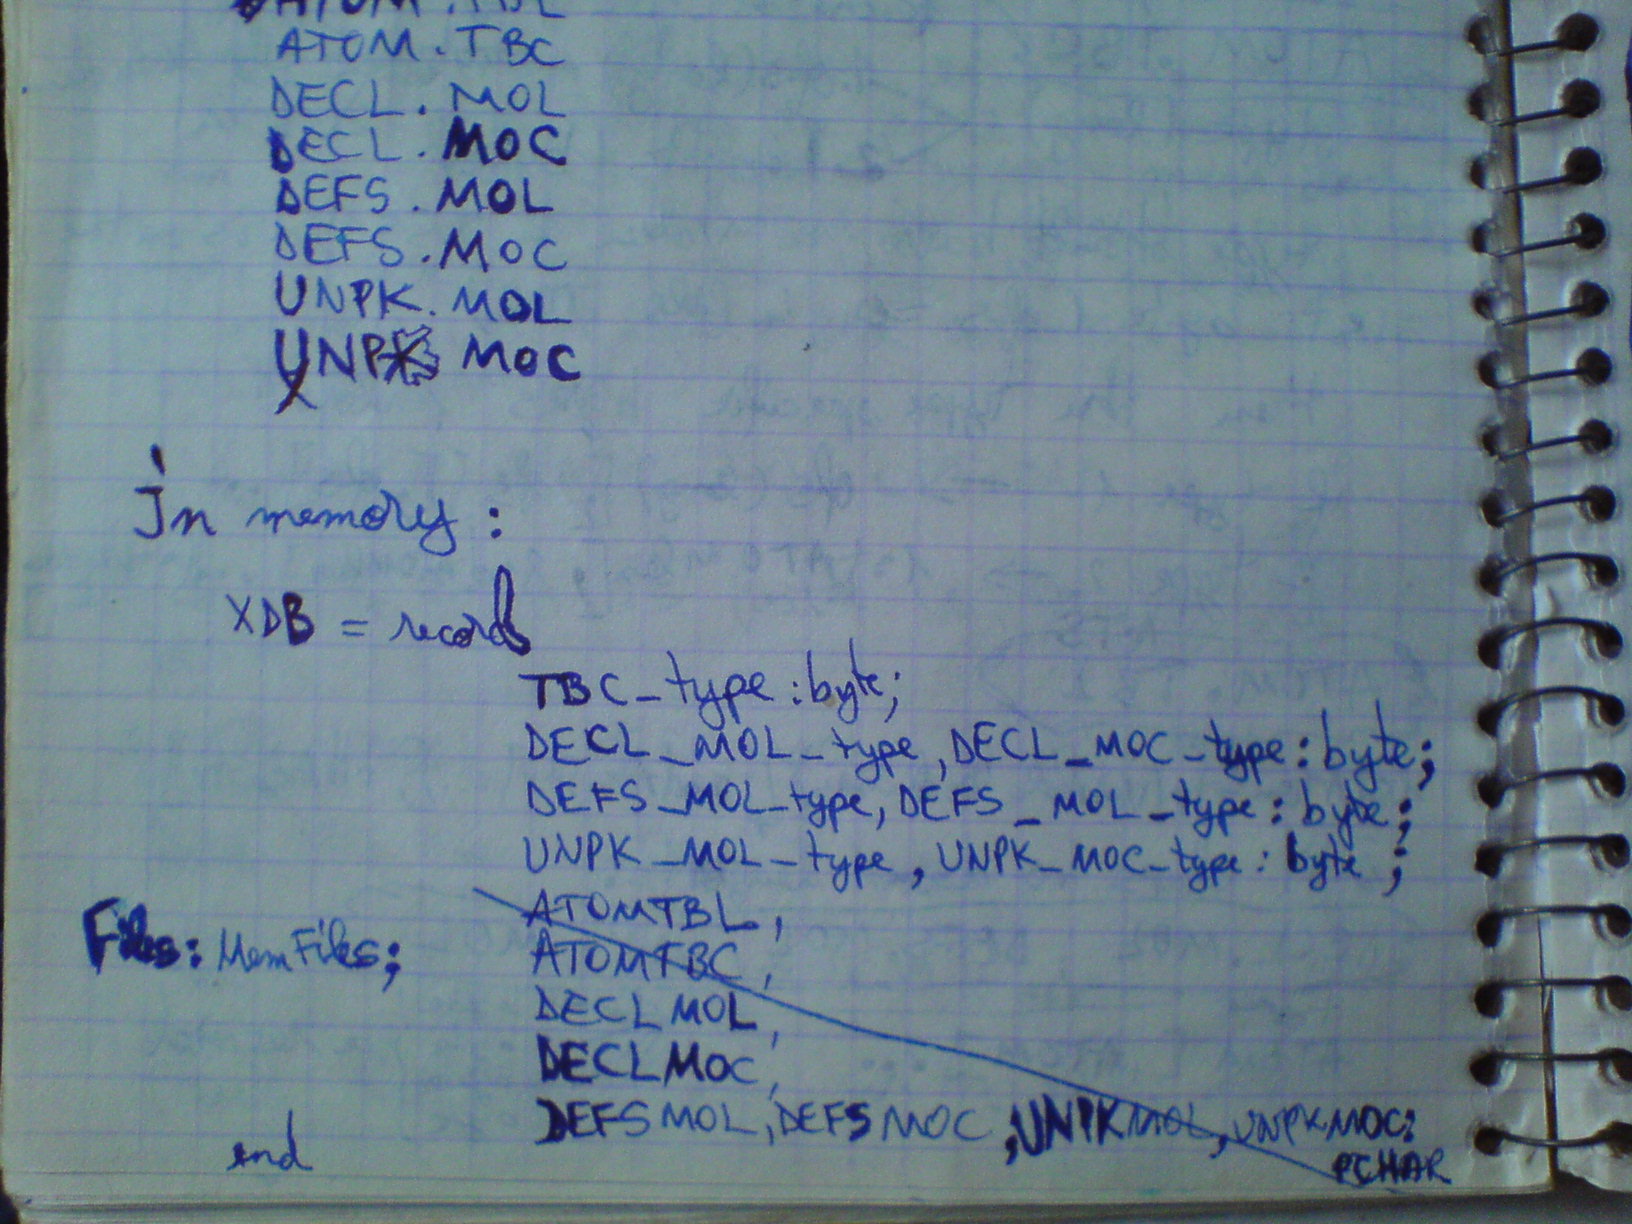 ATOM.TBL
ATOM.TBC
DECL.MOL
DECL.MOC
DEFS.MOL
DEFS.MOC
UNPK.MOL
UNPK MOC
In memory:
XDB = record
TBC_type:byte;
DECL_MOL_type,DECL_MOC_type:byte;
DEFS_MOL_type,DEFS_MOL_type:byte;
UNPK_MOL_type,UNPK_MOC_type:byte;
ATOMTBL,
Files: MemFiles; ATOMTBC,
DECLMOL,
DECLMOC,
DEFSMOL,DEFSMOC,UNPKMOL,UNPKMOC:
end PCHAR